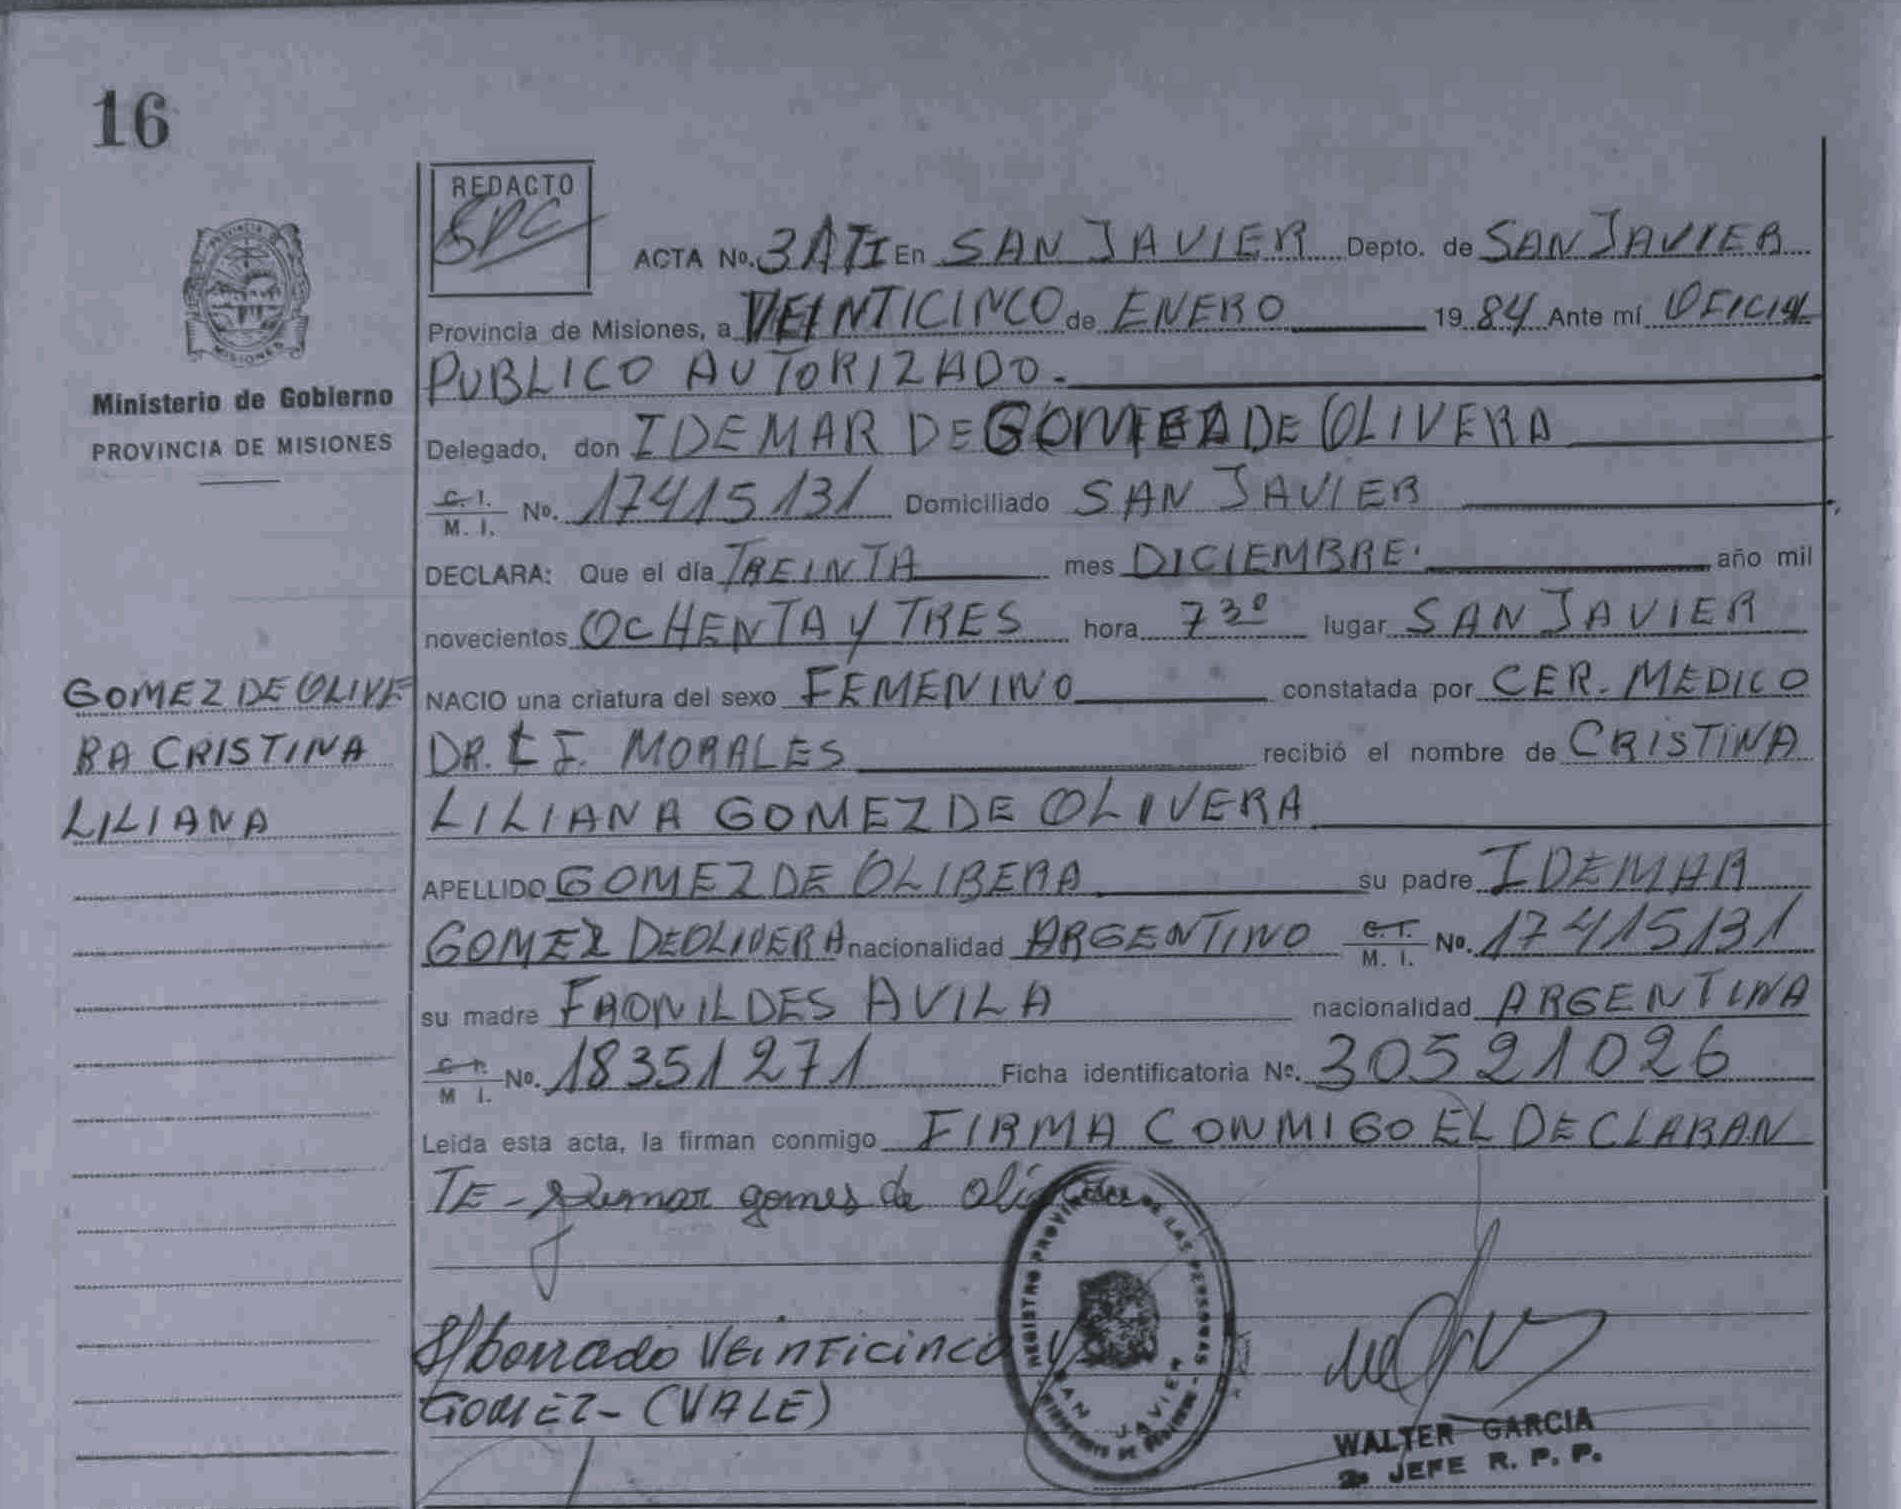 16
REDACTO
ACTA No. En SAN JAVIER Depto. de SAN JAVIER
Provincia de Misiones, a VEINTICINCO de ENERO 1984 Ante mí OFICIAL
PUBLICO AUTORIZADO.-
Ministerio de Gobierno
PROVINCIA DE MISIONES
Delegado, don IDEMAR DE GOMEZ DE OLIVERA
C. I. M. I. No. 17415131 Domiciliado SAN JAVIER
DECLARA: Que el día TREINTA mes DICIEMBRE. año mil
novecientos OCHENTA Y TRES hora 7 30 lugar SAN JAVIER
NACIO una criatura del sexo FEMENINO constatada por CER. MEDICO
DR. J. MORALES recibió el nombre de CRISTINA
LILIANA GOMEZ DE OLIVERA
GOMEZ DE OLIVE
RA CRISTINA
LILIANA
APELLIDO GOMEZ DE OLIBERA su padre IDEMAR
GOMEZ DEOLIVERA nacionalidad ARGENTINO C. I. M. I. No. 17415131
su madre FRONILDES AVILA nacionalidad ARGENTINA
C. I. M I. No. 18351271 Ficha identificatoria No. 30521026
Leida esta acta, la firman conmigo FIRMA CONMIGO EL DECLARAN
TE - Idemar gomes de
S/borrado VEINTICINCO y
GOMEZ - (VALE)
REGISTRO PROVINCIAL DE LAS PERSONAS
SAN JAVIER
WALTER GARCIA
2o JEFE R. P. P.
MISIONES